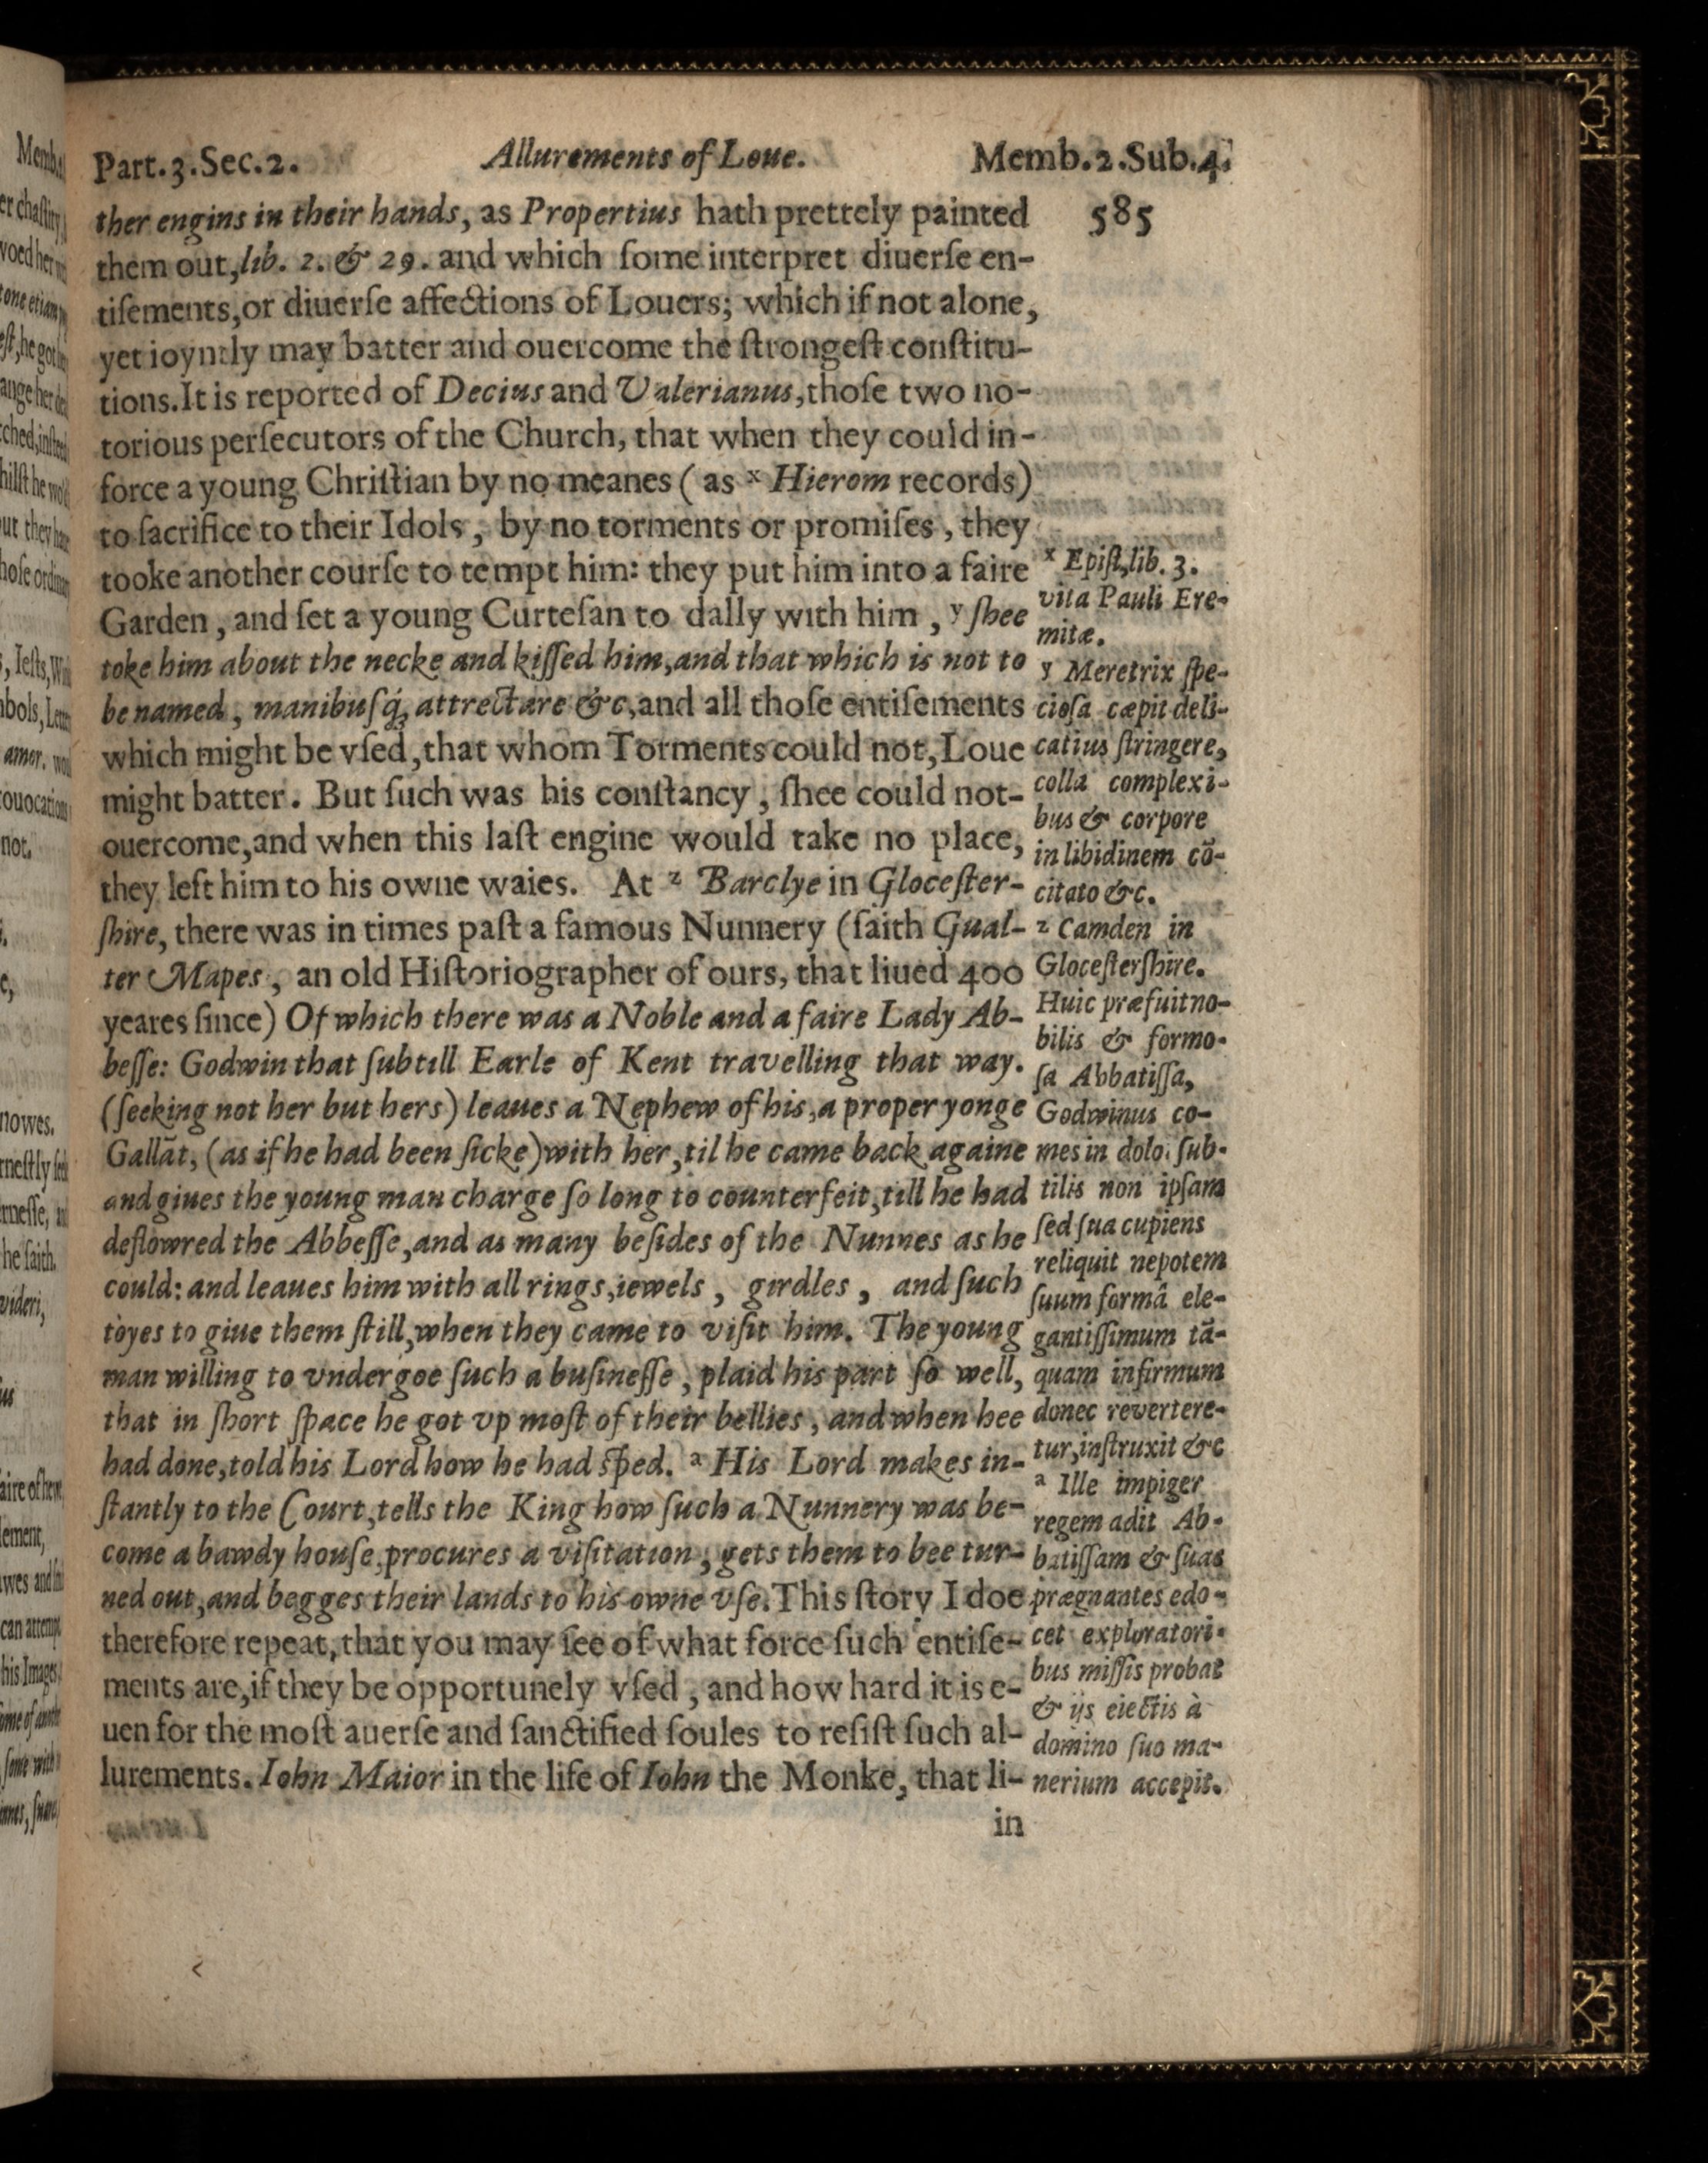 Part.3.Sec.2. Allurements of Loue. Memb.2.Sub.4.
585
ther engins in their hands, as Propertius hath prettely painted
them out, lib. 2. & 29. and which ſome interpret diuerſe en-
tiſements, or diuerſe affections of Louers; which if not alone,
yet ioyntly may batter and ouercome the ſtrongeſt conſtitu-
tions. It is reported of Decius and Valerianus, thoſe two no-
torious perſecutors of the Church, that when they could in-
force a young Chriſtian by no meanes ( as x Hierom records)
to ſacrifice to their Idols, by no torments or promiſes, they
tooke another courſe to tempt him: they put him into a faire
Garden, and ſet a young Curteſan to dally with him, y ſhee
toke him about the necke and kiſſed him, and that which is not to
be named, manibuſq́; attrectare &c, and all thoſe entiſements
which might be vſed, that whom Torments could not, Loue
might batter. But ſuch was his conſtancy, ſhee could not-
ouercome, and when this laſt engine would take no place,
they left him to his owne waies. At z Barclye in Gloceſter-
ſhire, there was in times paſt a famous Nunnery (ſaith Gual-
ter Mapes, an old Hiſtoriographer of ours, that liued 400
yeares ſince) Of which there was a Noble and a faire Lady Ab-
beſſe: Godwin that ſubtill Earle of Kent travelling that way.
(ſeeking not her but hers) leaues a Nephew of his, a proper yonge
Gallāt, (as if he had been ſicke) with her, til he came back againe
and giues the young man charge ſo long to counterfeit, till he had
deflowred the Abbeſſe, and as many beſides of the Nunnes as he
could: and leaues him with all rings, iewels, girdles, and ſuch
toyes to giue them ſtill, when they came to viſit him. The young
man willing to vndergoe ſuch a buſineſſe, plaid his part ſo well,
that in ſhort ſpace he got vp moſt of their bellies, and when hee
had done, told his Lord how he had ſped. a His Lord makes in-
ſtantly to the Court, tells the King how ſuch a Nunnery was be-
come a bawdy houſe, procures a viſitation, gets them to bee tur-
ned out, and begges their lands to his owne vſe. This ſtory I doe
therefore repeat, that you may ſee of what force ſuch entiſe-
ments are, if they be opportunely vſed, and how hard it is e-
uen for the moſt auerſe and ſanctified ſoules to reſiſt ſuch al-
lurements. Iohn Maior in the life of Iohn the Monke, that li-
in
x Epiſt, lib. 3.
vita Pauli Ere-
mitæ.
y Meretrix ſpe-
cioſa cæpit deli-
catius ſtringere,
colla complexi-
bus & corpore
in libidinem cō-
citato &c.
z Camden in
Gloceſterſhire.
Huic præfuit no-
bilis & formo-
ſa Abbatiſſa,
Godwinus co-
mes in dolo. ſub-
tilis non ipſam
ſed ſua cupiens
reliquit nepotem
ſuum formâ ele-
gantiſſimum tā-
quam infirmum
donec revertere-
tur, inſtruxit &c
a Ille impiger
regem adit Ab-
batiſſam & ſuas
prægnantes edo-
cet exploratori-
bus miſſis probat
& ijs eiectis à
domino ſuo ma-
nerium accepit.